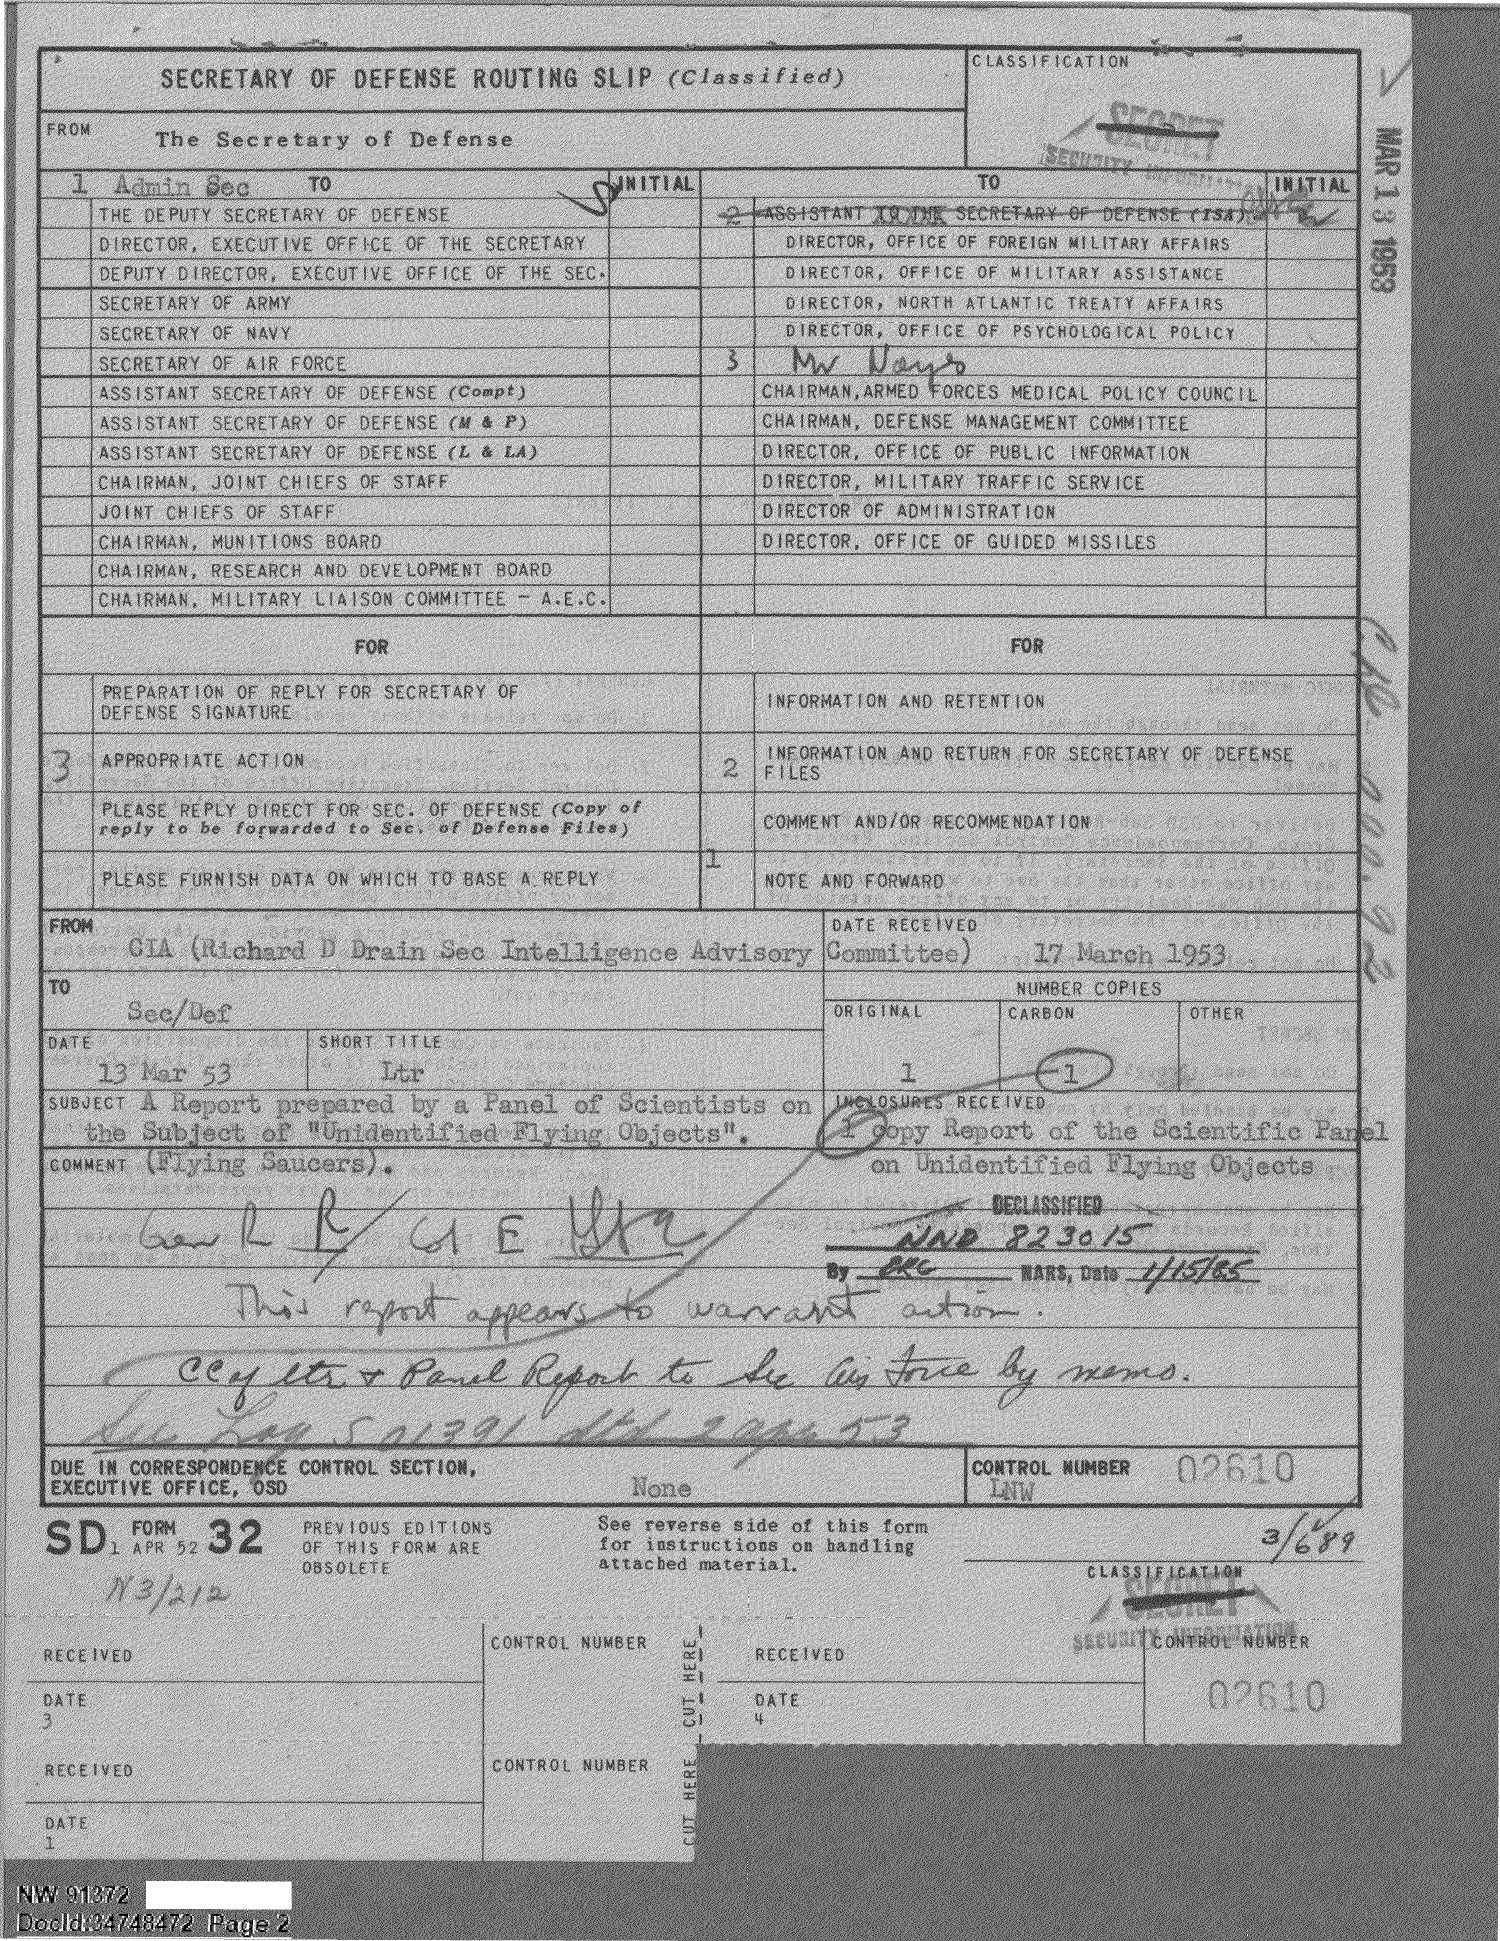 SECRETARY OF DEFENSE ROUTING SLIP (Classified)
CLASSIFICATION
SECRET
SECURITY INFORMATION
FROM
The Secretary of Defense
MAR 13 1953
1 Admin Sec TO INITIAL
THE DEPUTY SECRETARY OF DEFENSE
DIRECTOR, EXECUTIVE OFFICE OF THE SECRETARY
DEPUTY DIRECTOR, EXECUTIVE OFFICE OF THE SEC.
SECRETARY OF ARMY
SECRETARY OF NAVY
SECRETARY OF AIR FORCE
ASSISTANT SECRETARY OF DEFENSE (Compt)
ASSISTANT SECRETARY OF DEFENSE (M & P)
ASSISTANT SECRETARY OF DEFENSE (L & LA)
CHAIRMAN, JOINT CHIEFS OF STAFF
JOINT CHIEFS OF STAFF
CHAIRMAN, MUNITIONS BOARD
CHAIRMAN, RESEARCH AND DEVELOPMENT BOARD
CHAIRMAN, MILITARY LIAISON COMMITTEE - A.E.C.
TO INITIAL
2 ASSISTANT TO THE SECRETARY OF DEFENSE (ISA)
DIRECTOR, OFFICE OF FOREIGN MILITARY AFFAIRS
DIRECTOR, OFFICE OF MILITARY ASSISTANCE
DIRECTOR, NORTH ATLANTIC TREATY AFFAIRS
DIRECTOR, OFFICE OF PSYCHOLOGICAL POLICY
3 Mr Noyes
CHAIRMAN, ARMED FORCES MEDICAL POLICY COUNCIL
CHAIRMAN, DEFENSE MANAGEMENT COMMITTEE
DIRECTOR, OFFICE OF PUBLIC INFORMATION
DIRECTOR, MILITARY TRAFFIC SERVICE
DIRECTOR OF ADMINISTRATION
DIRECTOR, OFFICE OF GUIDED MISSILES
FOR
PREPARATION OF REPLY FOR SECRETARY OF
DEFENSE SIGNATURE
3 APPROPRIATE ACTION
PLEASE REPLY DIRECT FOR SEC. OF DEFENSE (Copy of
reply to be forwarded to Sec. of Defense Files)
PLEASE FURNISH DATA ON WHICH TO BASE A REPLY
FOR
INFORMATION AND RETENTION
2 INFORMATION AND RETURN FOR SECRETARY OF DEFENSE
FILES
COMMENT AND/OR RECOMMENDATION
1 NOTE AND FORWARD
000.92
FROM
CIA (Richard D Drain Sec Intelligence Advisory Committee)
DATE RECEIVED
17 March 1953
TO
Sec/Def
NUMBER COPIES
ORIGINAL
1
CARBON
1
OTHER
DATE
13 Mar 53
SHORT TITLE
Ltr
SUBJECT A Report prepared by a Panel of Scientists on
the Subject of "Unidentified Flying Objects".
COMMENT (Flying Saucers).
INCLOSURES RECEIVED
1 copy Report of the Scientific Panel
on Unidentified Flying Objects
DECLASSIFIED
NND 823015
By ERC NARS, Date 1/15/85
Gen R R/ Col E
This report appears to warrant action.
CC of ltr + Panel Report to Sec Air Force by memo.
See Log S 01391 dtd 2 apr 53
DUE IN CORRESPONDENCE CONTROL SECTION,
EXECUTIVE OFFICE, OSD
None
CONTROL NUMBER 02610
LNW
SD FORM 32
1 APR 52
PREVIOUS EDITIONS
OF THIS FORM ARE
OBSOLETE
See reverse side of this form
for instructions on handling
attached material.
3/689
N3/212
CLASSIFICATION
SECRET
SECURITY INFORMATION
RECEIVED
CONTROL NUMBER
DATE
3
CUT HERE
RECEIVED
CONTROL NUMBER
02610
DATE
4
RECEIVED
CONTROL NUMBER
DATE
1
CUT HERE
NW 91372
DocId:34748472 Page 2